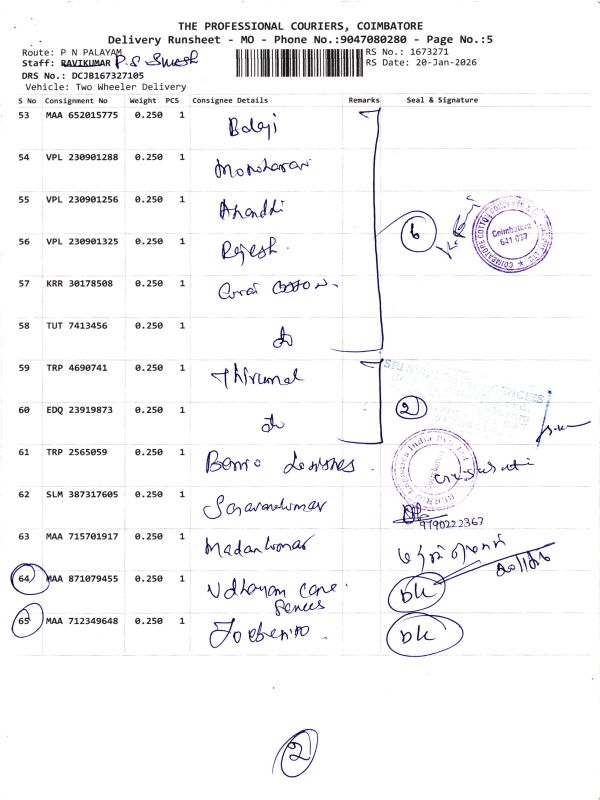 THE PROFESSIONAL COURIERS, COIMBATORE
Delivery Runsheet - MO - Phone No.:9047080280 - Page No.:5
Route: P N PALAYAM
RS No.: 1673271
Staff: RAVIKUMAR P.S Suresh
RS Date: 20-Jan-2026
DRS No.: DCJB167327105
Vehicle: Two Wheeler Delivery
S No Consignment No Weight PCS Consignee Details Remarks Seal & Signature
53 MAA 652015775 0.250 1 Balaji
54 VPL 230901288 0.250 1 Manoharan
55 VPL 230901256 0.250 1 Anandhi
6
COIMBATORE COTTO
Coimbatore
641 037
56 VPL 230901325 0.250 1 Rajesh.
57 KRR 30178508 0.250 1 Cotton.
58 TUT 7413456 0.250 1 do
59 TRP 4690741 0.250 1 Thirumal
60 EDQ 23919873 0.250 1 do 2
61 TRP 2565059 0.250 1
62 SLM 387317605 0.250 1 Saravanakumar
9790222367
63 MAA 715701917 0.250 1 Madankumar
64 MAA 871079455 0.250 1 Udhayam care DK
65 MAA 712349648 0.250 1 DK
2